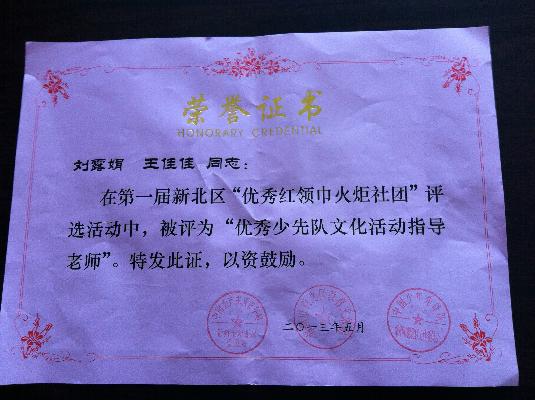 荣誉证书
HONORARY CREDENTIAL
刘露娟 王佳佳 同志：
在第一届新北区“优秀红领巾火炬社团”评
选活动中，被评为“优秀少先队文化活动指导
老师”。特发此证，以资鼓励。
二〇一三年五月